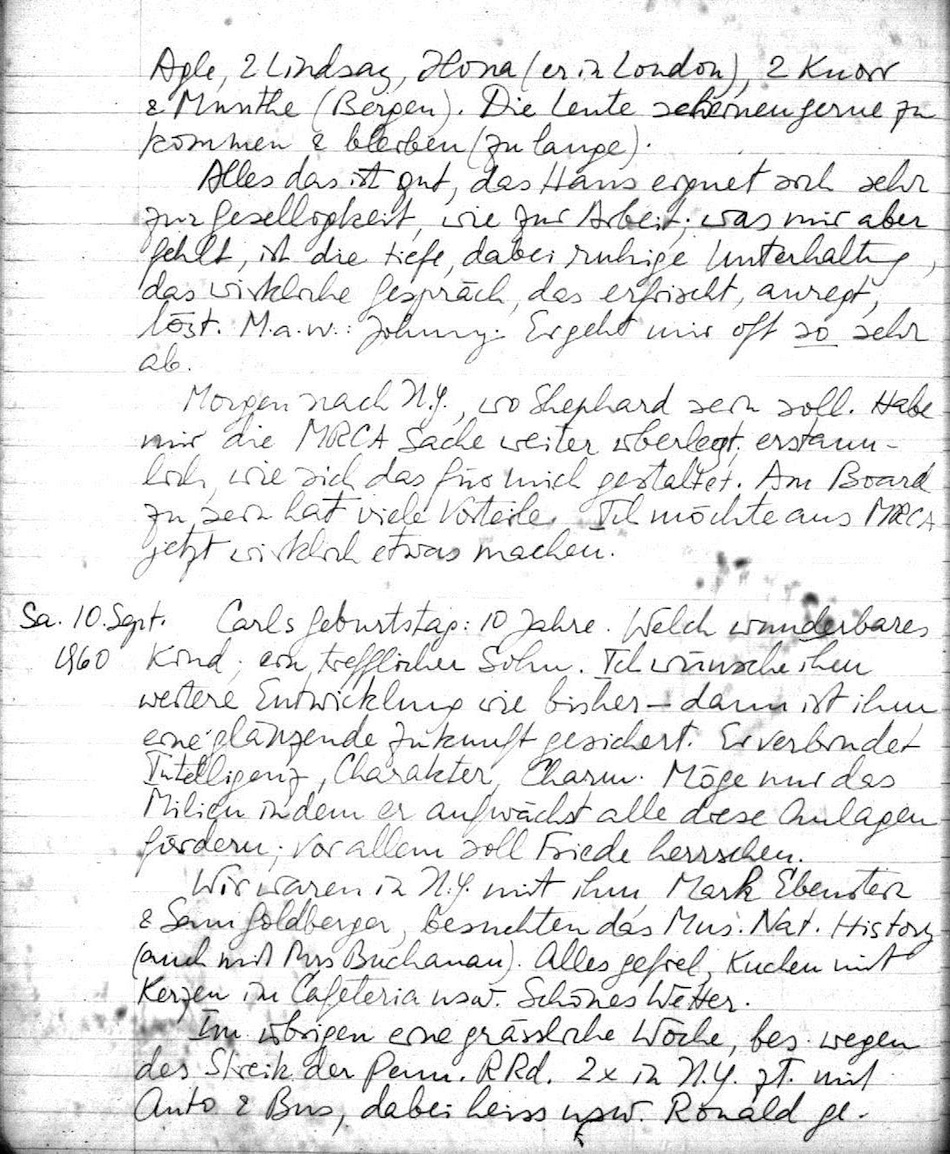 Agle, 2 Lindsay, Ilona (er in London), 2 Knorr
& Munthe (Bergen). Die Leute scheinen gerne zu
kommen & bleiben (zu lange).
Alles das ist gut, das Haus eignet sich sehr
zur Geselligkeit, wie zur Arbeit; was mir aber
fehlt, ist die tiefe, dabei ruhige Unterhaltung,
das wirkliche Gespräch, das erfrischt, anregt,
löst. M.a.w.: Johnny. Er geht mir oft so sehr
ab.
Morgen nach N.Y., wo Shephard sein soll. Habe
mir die MRCA Sache weiter überlegt; erstaun-
lich, wie sich das für mich gestaltet. Am Board
zu sein hat viele Vorteile. Ich möchte aus MRCA
jetzt wirklich etwas machen.
Sa. 10. Sept. Carls Geburtstag: 10 Jahre. Welch wunderbares
1960 Kind; ein trefflicher Sohn. Ich wünsche ihm
weitere Entwicklung wie bisher – dann ist ihm
eine glänzende Zukunft gesichert. Er verbindet
Intelligenz, Charakter, Charm. Möge nur das
Milieu in dem er aufwächst alle diese Anlagen
fördern; vor allem soll Friede herrschen.
Wir waren in N.Y. mit ihm, Mark Ebenstein
& Sam Goldberger, besuchten das Mus. Nat. History
(auch mit Mrs Buchanan). Alles gefiel, Kuchen mit
Kerzen im Cafeteria usw. Schönes Wetter.
Im übrigen eine grässliche Woche, bes. wegen
des Streik der Penn. RRd. 2x in N.Y. zt. mit
Auto & Bus, dabei heiss usw. Ronald ge-